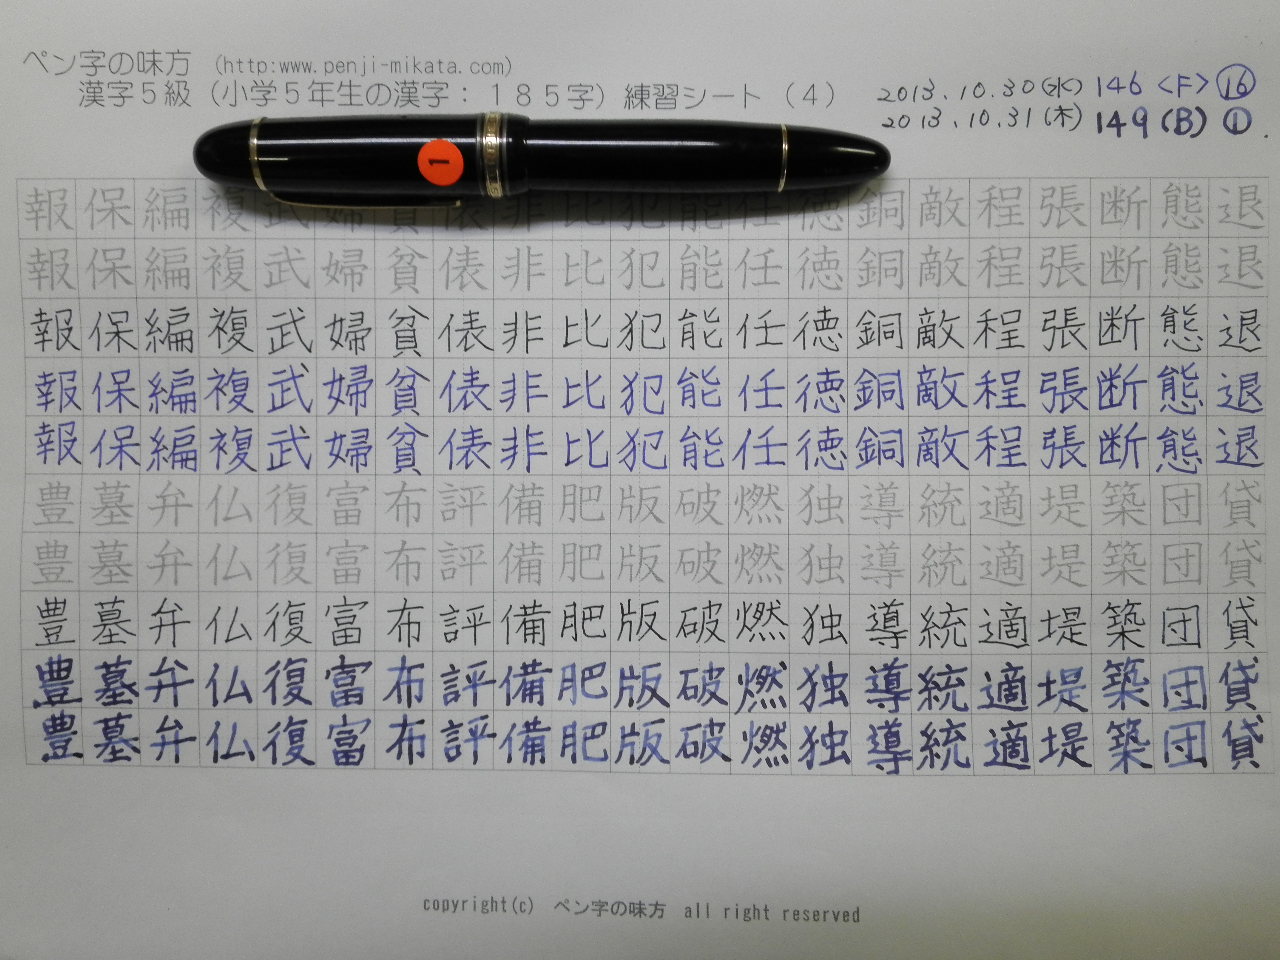 ペン字の味方 (http:www.penji-mikata.com)
漢字5級(小学5年生の漢字:185字)練習シート(4)
2013.10.30(水) 146 <F> ⑯
2013.10.31(木) 149 (B) ①
1
報保編複武婦貧俵非比犯能任徳銅敵程張断態退
報保編複武婦貧俵非比犯能任徳銅敵程張断態退
報保編複武婦貧俵非比犯能任徳銅敵程張断態退
報保編複武婦貧俵非比犯能任徳銅敵程張断態退
報保編複武婦貧俵非比犯能任徳銅敵程張断態退
豊墓弁仏復富布評備肥版破燃独導統適堤築団貸
豊墓弁仏復富布評備肥版破燃独導統適堤築団貸
豊墓弁仏復富布評備肥版破燃独導統適堤築団貸
豊墓弁仏復富布評備肥版破燃独導統適堤築団貸
豊墓弁仏復富布評備肥版破燃独導統適堤築団貸
copyright(c) ペン字の味方 all right reserved